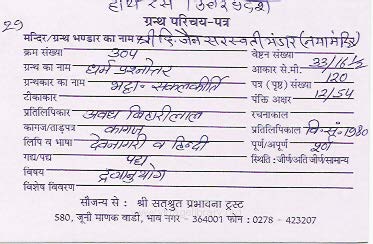 29
ग्रन्थ परिचय-पत्र
मन्दिर/ग्रन्थ भण्डार का नाम श्री दि. जैन सरस्वती भंडार (नयामंदिर)
क्रम संख्या ३०५ वेष्टन संख्या
ग्रन्थ का नाम धर्म प्रश्नोत्तर आकार से.मी. 33/16½
ग्रन्थकार का नाम भट्टा. सकलकीर्ति पत्र (पृष्ठ) संख्या 120
टीकाकार पंक्ति अक्षर 12/54
प्रतिलिपिकार अवध बिहारीलाल रचनाकाल
कागज/ताड़पत्र कागज प्रतिलिपिकाल वि.सं. 1980
लिपि व भाषा देवनागरी व हिन्दी पूर्ण/अपूर्ण पूर्ण
गद्य/पद्य पद्य स्थिति : जीर्ण/अति जीर्ण/सामान्य
विषय द्रव्यानुयोग
विशेष विवरण
सौजन्य से : श्री सत्श्रुत प्रभावना ट्रस्ट
580, जूनी माणक वाडी, भाव नगर - 364001 फोन : 0278 - 423207